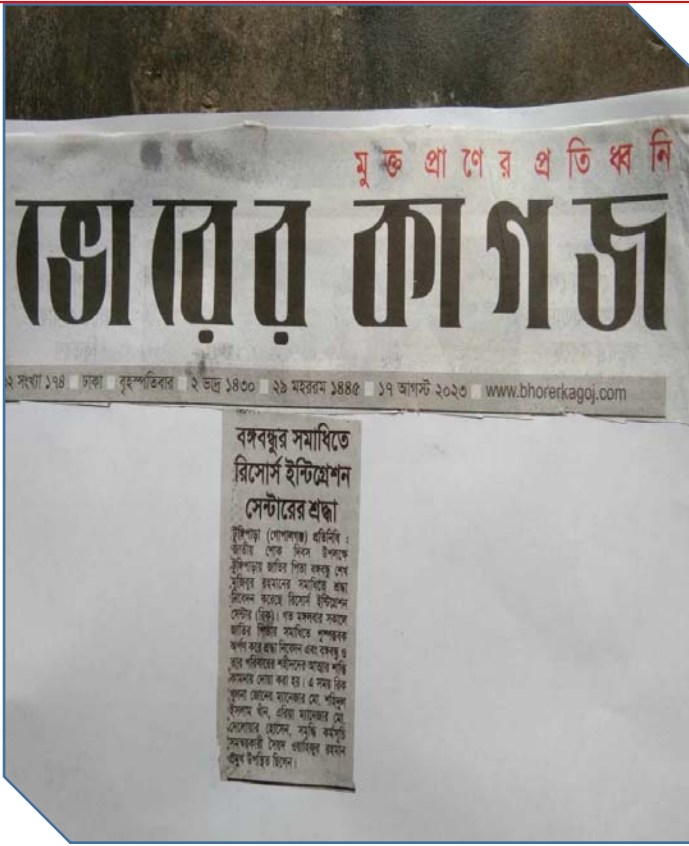 মুক্ত প্রাণের প্রতিধ্বনি
ভোরের কাগজ
২ সংখ্যা ১৭৪ ঢাকা বৃহস্পতিবার ২ ভাদ্র ১৪৩০ ২৯ মহররম ১৪৪৫ ১৭ আগস্ট ২০২৩ www.bhorerkagoj.com
বঙ্গবন্ধুর সমাধিতে
রিসোর্স ইন্টিগ্রেশন
সেন্টারের শ্রদ্ধা
টুঙ্গিপাড়া (গোপালগঞ্জ) প্রতিনিধি :
জাতীয় শোক দিবস উপলক্ষে
টুঙ্গিপাড়ায় জাতির পিতা বঙ্গবন্ধু শেখ
মুজিবুর রহমানের সমাধিতে শ্রদ্ধা
নিবেদন করেছে রিসোর্স ইন্টিগ্রেশন
সেন্টার (রিক)। গত মঙ্গলবার সকালে
জাতির পিতার সমাধিতে পুষ্পস্তবক
অর্পণ করে শ্রদ্ধা নিবেদন এবং বঙ্গবন্ধু ও
তার পরিবারের শহীদদের আত্মার শান্তি
কামনায় দোয়া করা হয়। এ সময় রিক
খুলনা জোনের ম্যানেজার মো. শহিদুল
ইসলাম খাঁন, এরিয়া ম্যানেজার মো.
দেলোয়ার হোসেন, সমৃদ্ধি কর্মসূচি
সমন্বয়কারী সৈয়দ ওয়াহিদুর রহমান
প্রমুখ উপস্থিত ছিলেন।